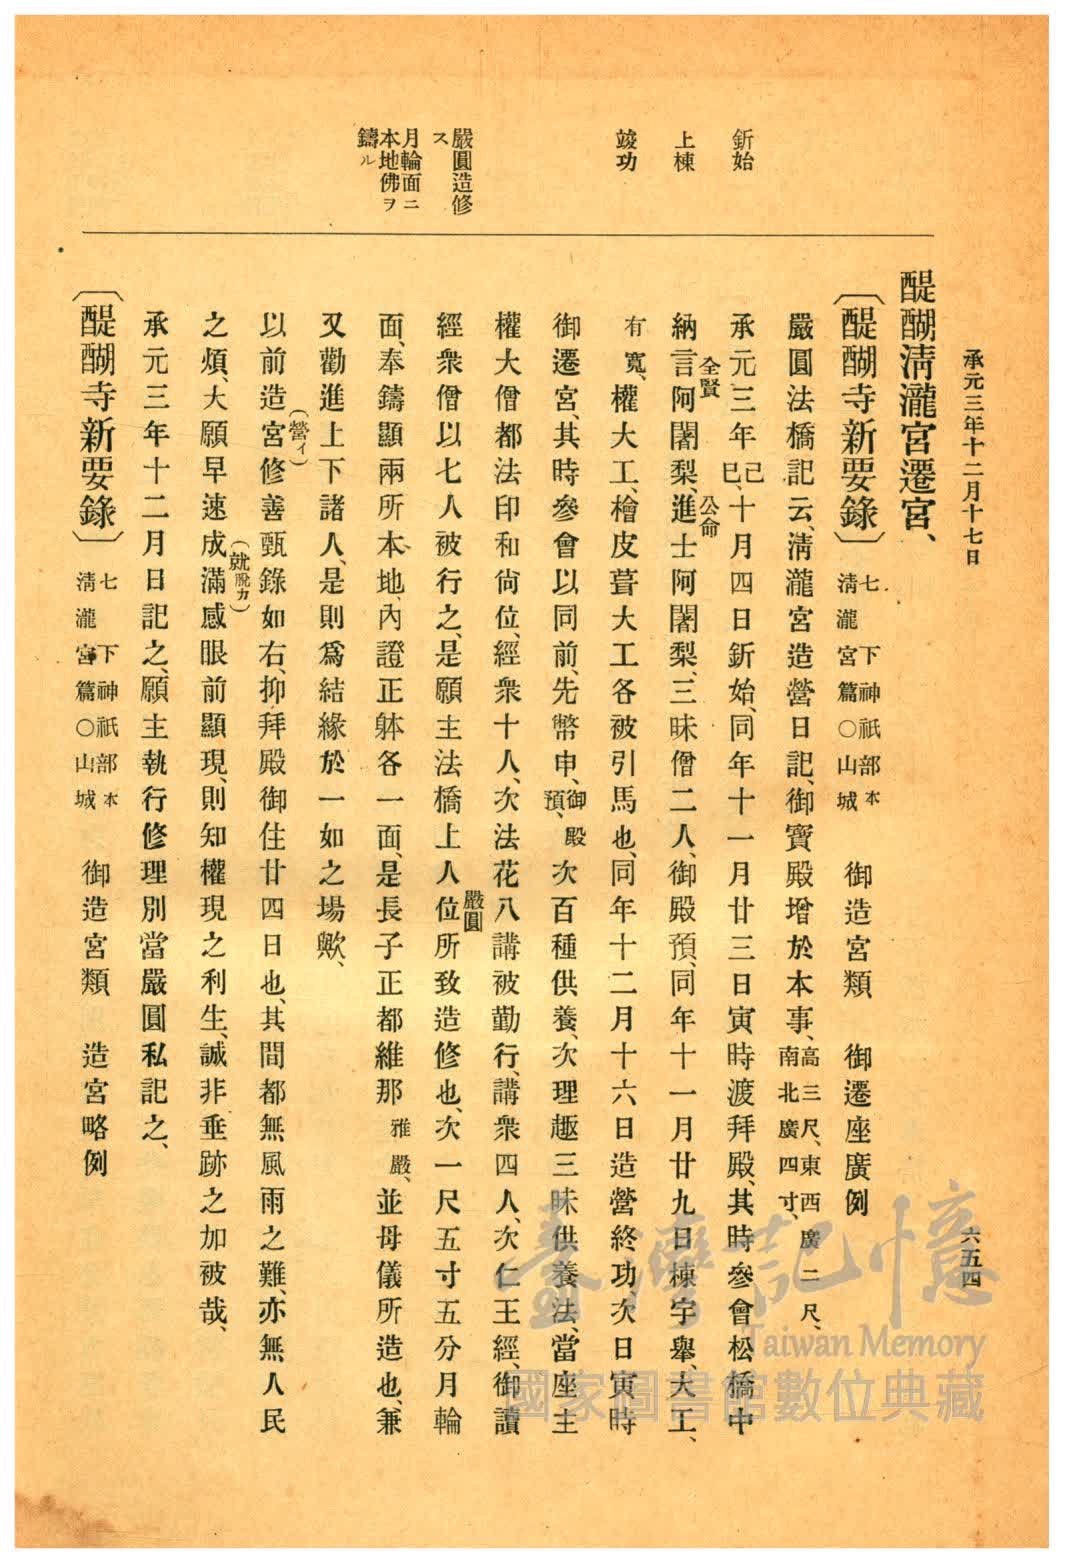 承元三年十二月十七日
六五四
釿始
上棟
竣功
嚴圓造修
ス
月輪面ニ
本地佛ヲ
鑄ル
醍醐淸瀧宮遷宮、
〔醍醐寺新要錄〕 七下神祇部本 淸瀧宮篇○山城 御造宮類 御遷座廣例
嚴圓法橋記云、淸瀧宮造營日記、御寶殿增於本事、高三尺、東西廣二尺、南北廣四寸、
承元三年己巳、十月四日釿始、同年十一月廿三日寅時渡拜殿、其時參會松橋中
納言阿闍梨、全賢進士阿闍梨、公命三昧僧二人、御殿預、同年十一月廿九日棟宇舉、大工、
有寬、權大工、檜皮葺大工各被引馬也、同年十二月十六日造營終功、次日寅時
御遷宮、其時參會以同前、先幣申、御殿預、次百種供養、次理趣三昧供養法、當座主
權大僧都法印和尙位、經衆十人、次法花八講被勤行、講衆四人、次仁王經、御讀
經衆僧以七人被行之、是願主法橋上人位嚴圓所致造修也、次一尺五寸五分月輪
面、奉鑄顯兩所本地、內證正躰各一面、是長子正都維那雅嚴、並母儀所造也、兼
又勸進上下諸人、是則爲結緣於一如之場歟、
以前造宮(營イ)修善甄錄如右、抑拜殿御住廿四日也、其間都無風雨之難、亦無人民
之煩、大願早速成(就脫カ)滿感眼前顯現、則知權現之利生、誠非垂跡之加被哉、
承元三年十二月日記之、願主執行修理別當嚴圓私記之、
〔醍醐寺新要錄〕 七下神祇部本 淸瀧宮篇○山城 御造宮類 造宮略例
臺灣記憶
Taiwan Memory
國家圖書館數位典藏